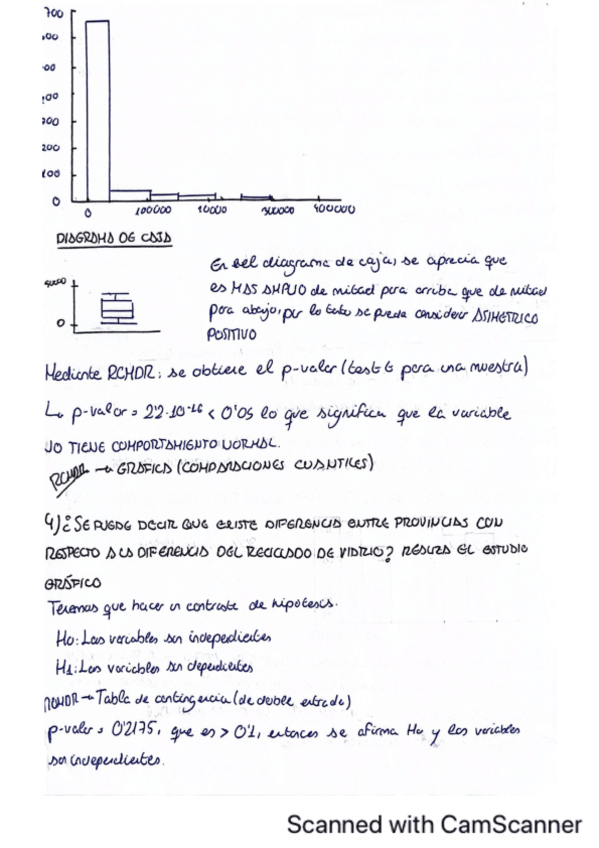 700
,00
,00
,00
300
200
100
0
0 100000 10000 300000 400000
DIAGRAMA DE CAJA
En sel diagrama de cajas se aprecia que
es MAS AMPLIO de mitad para arriba que de mitad
para abajo, por lo tanto se puede considerar ASIMETRICO
POSITIVO
0
Mediante RCMDR: se obtiene el p-valor (test t para una muestra)
p-valor = 2'2·10-16 < 0'05 lo que significa que la variable
NO TIENE COMPORTAMIENTO NORMAL.
RCMDR → GRÁFICA (COMPARACIONES CUANTILES)
4) ¿SE PUEDE DECIR QUE EXISTE DIFERENCIA ENTRE PROVINCIAS CON
RESPECTO A LA DIFERENCIA DEL RECICLADO DE VIDRIO? REALIZA EL ESTUDIO
GRÁFICO
Tenemos que hacer un contraste de hipótesis.
H0: Las variables son independientes
H1: Las variables son dependientes
RCMDR → Tabla de contingencia (de doble entrada)
p-valor = 0'2175, que es > 0'1, entonces se afirma H0 y las variables
son independientes.
Scanned with CamScanner